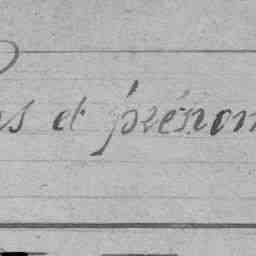 s et prénom